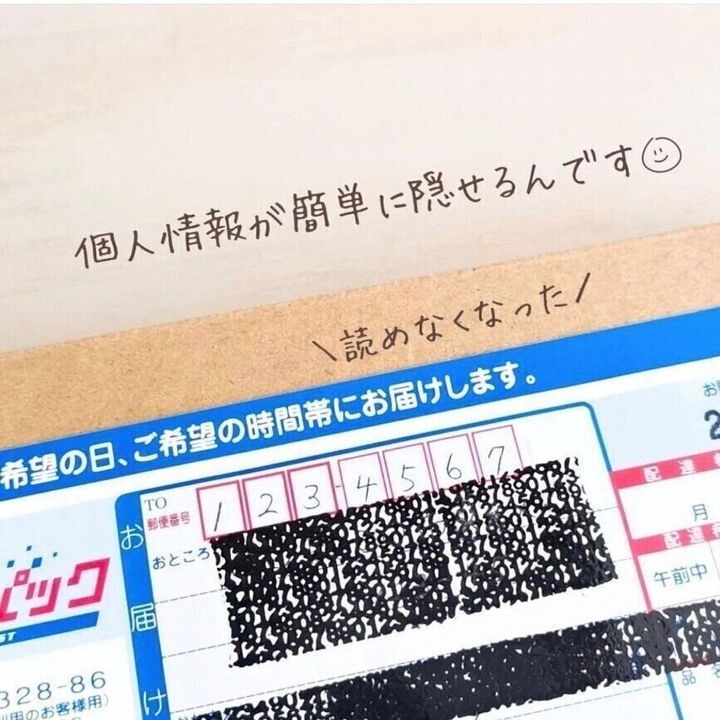 個人情報が簡単に隠せるんです
\読めなくなった/
希望の日、ご希望の時間帯にお届けします。
TO
郵便番号
1 2 3 4 5 6 7
おところ
お届け
パック
328-86
利用のお客様用)
配達
月
配達
午前中
品名